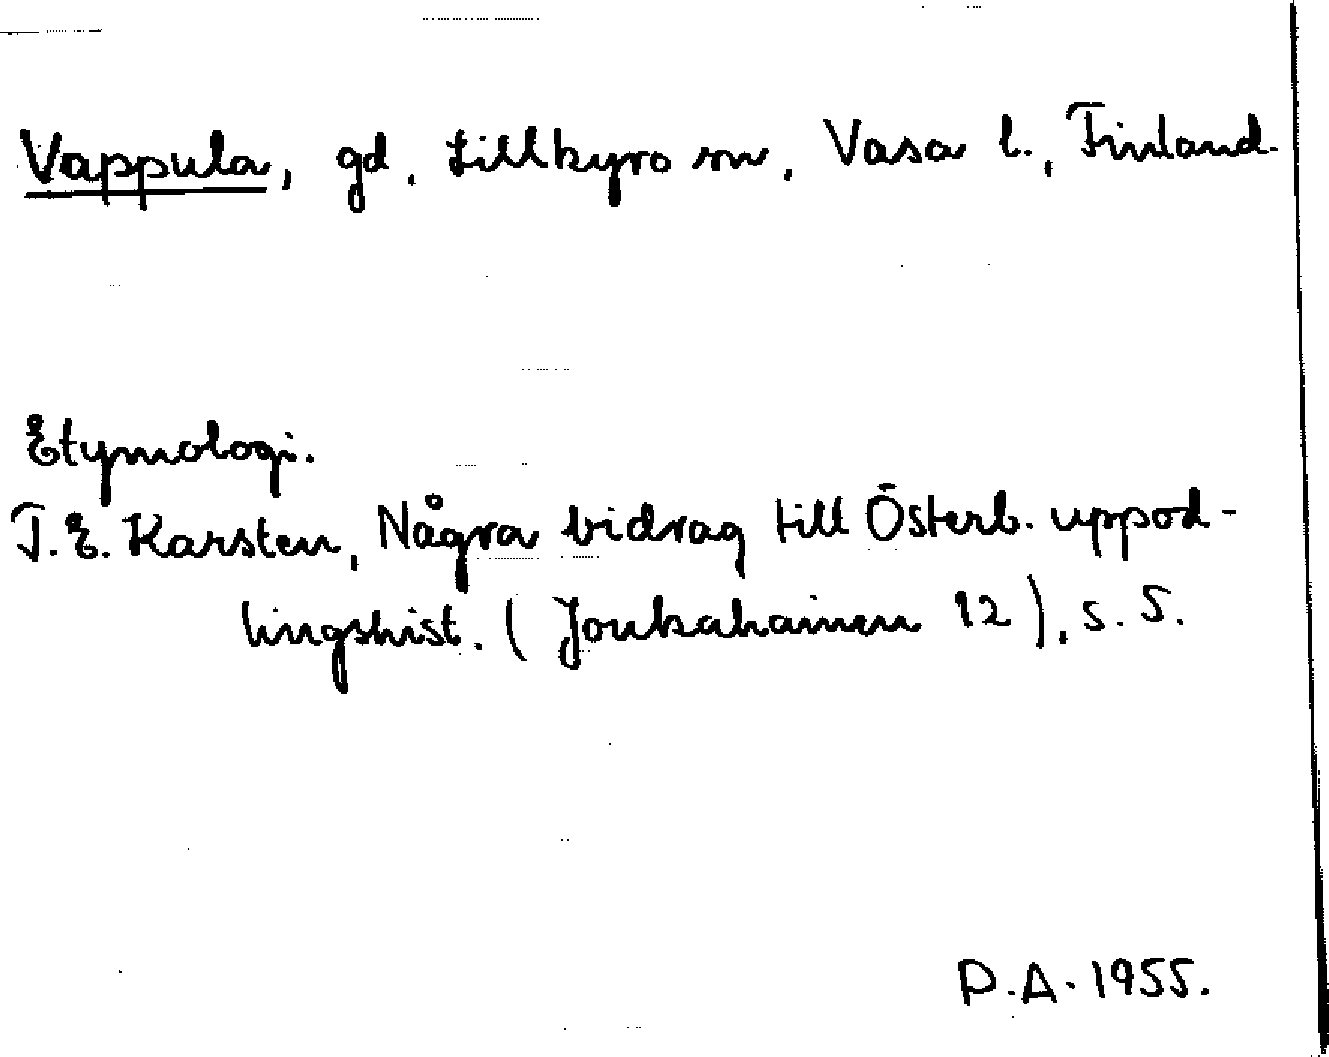 Vappula, gd, Lillkyro sn, Vasa l., Finland.
Etymologi.
T. E. Karsten, Några bidrag till Österb. uppod-
lingshist. (Joukahainen 12), s. 5.
P.A. 1955.